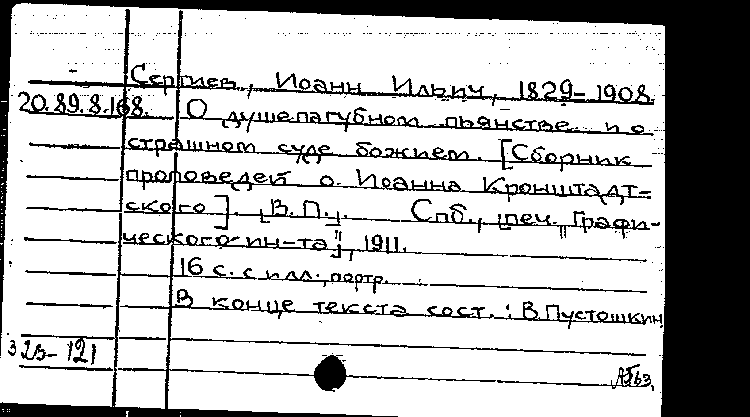 Сергиев, Иоанн Ильич, 1829-1908.
20.89.8.168. О душепагубном пьянстве и о
страшном суде божием. [Сборник
проповедей о. Иоанна Кронштадт=
ского]. [В.П.]. Спб., [печ. "Графи-
ческого ин-та"], 1911.
16 с. с илл., портр.
В конце текста сост.: В. Пустошкин